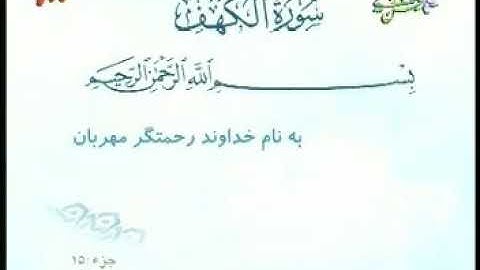 سُورَةُ الْكَهْفِ
بِسْمِ اللَّهِ الرَّحْمَٰنِ الرَّحِيمِ
به نام خداوند رحمتگر مهربان
جزء ۱۵